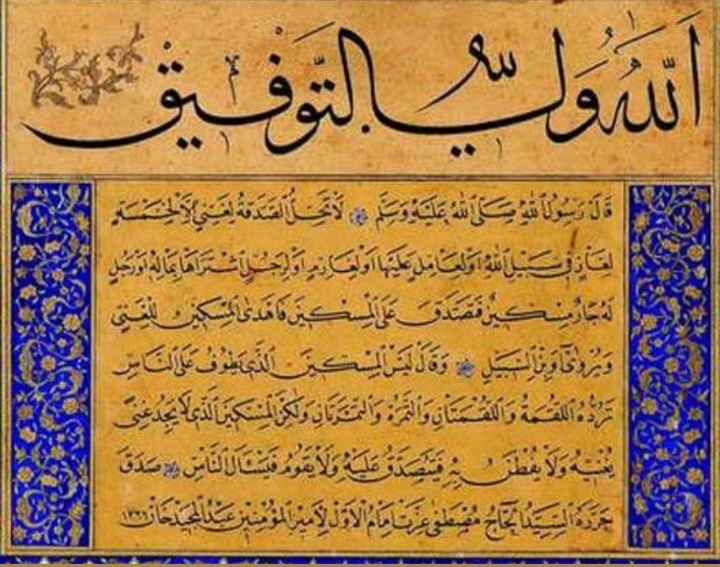 الله ولي التوفيق
قال رسول الله صلى الله عليه وسلم لا تحل الصدقة لغني إلا لخمسة
لغاز في سبيل الله أو لعامل عليها أو لغارم أو لرجل اشتراها بماله أو رجل
له جار مسكين فتصدق على المسكين فأهدى المسكين للغني
ويروى أو ابن السبيل وقال ليس المسكين الذي يطوف على الناس
ترده اللقمة واللقمتان والتمرة والتمرتان ولكن المسكين الذي لا يجد غنى
يغنيه ولا يفطن به فيتصدق عليه ولا يقوم فيسأل الناس صدق
حرره السيد الحاج مصطفى عزت إمام الأول لأمير المؤمنين عبد المجيد خان